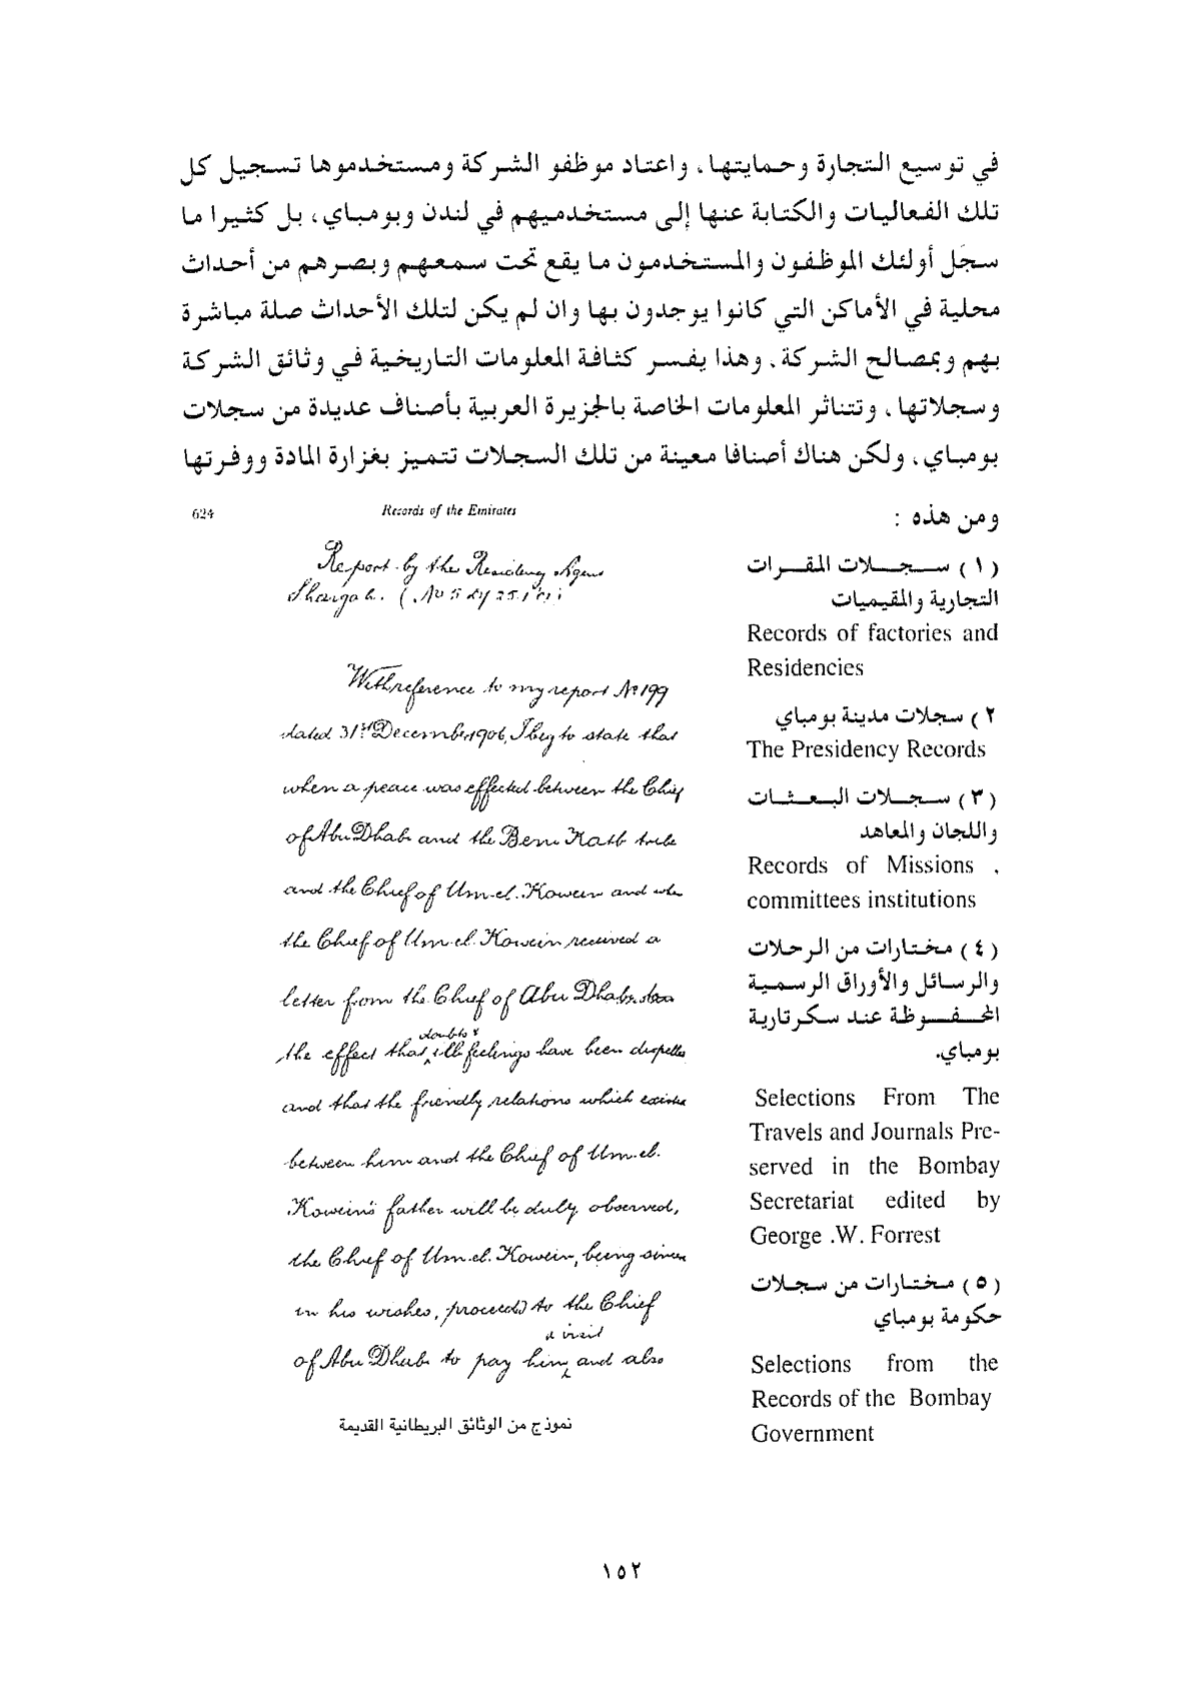 في توسيع التجارة وحمايتها، واعتاد موظفو الشركة ومستخدموها تسجيل كل
تلك الفعاليات والكتابة عنها إلى مستخدميهم في لندن وبومباي، بل كثيرا ما
سجّل أولئك الموظفون والمستخدمون ما يقع تحت سمعهم وبصرهم من أحداث
محلية في الأماكن التي كانوا يوجدون بها وان لم يكن لتلك الأحداث صلة مباشرة
بهم وبمصالح الشركة. وهذا يفسر كثافة المعلومات التاريخية في وثائق الشركة
وسجلاتها، وتتناثر المعلومات الخاصة بالجزيرة العربية بأصناف عديدة من سجلات
بومباي، ولكن هناك أصنافا معينة من تلك السجلات تتميز بغزارة المادة ووفرتها
ومن هذه :
(١) سجلات المقرات
التجارية والمقيميات
Records of factories and
Residencies
٢) سجلات مدينة بومباي
The Presidency Records
(٣) سجلات البعثات
واللجان والمعاهد
Records of Missions .
committees institutions
(٤) مختارات من الرحلات
والرسائل والأوراق الرسمية
المحفوظة عند سكرتارية
بومباي.
Selections From The
Travels and Journals Pre-
served in the Bombay
Secretariat edited by
George .W. Forrest
(٥) مختارات من سجلات
حكومة بومباي
Selections from the
Records of the Bombay
Government
624
Records of the Emirates
Report by the Residency Agent
Shargah. (No 5
With reference to my report No 199
dated 31st December 1906, I beg to state that
when a peace was effected between the Chief
of Abu Dhabi and the Beni Kattb tribe
and the Chief of Um-el-Kowein and
the Chief of Um-el-Kowein received a
letter from the Chief of Abu Dhabi
doubts &
the effect that ill feelings have been dispelled
and that the friendly relations which existed
between him and the Chief of Um-el-
Kowein's father will be duly observed,
the Chief of Um-el-Kowein, being sincere
in his wishes, proceeds to the Chief
a visit
of Abu Dhabi to pay him and also
نموذج من الوثائق البريطانية القديمة
١٥٢